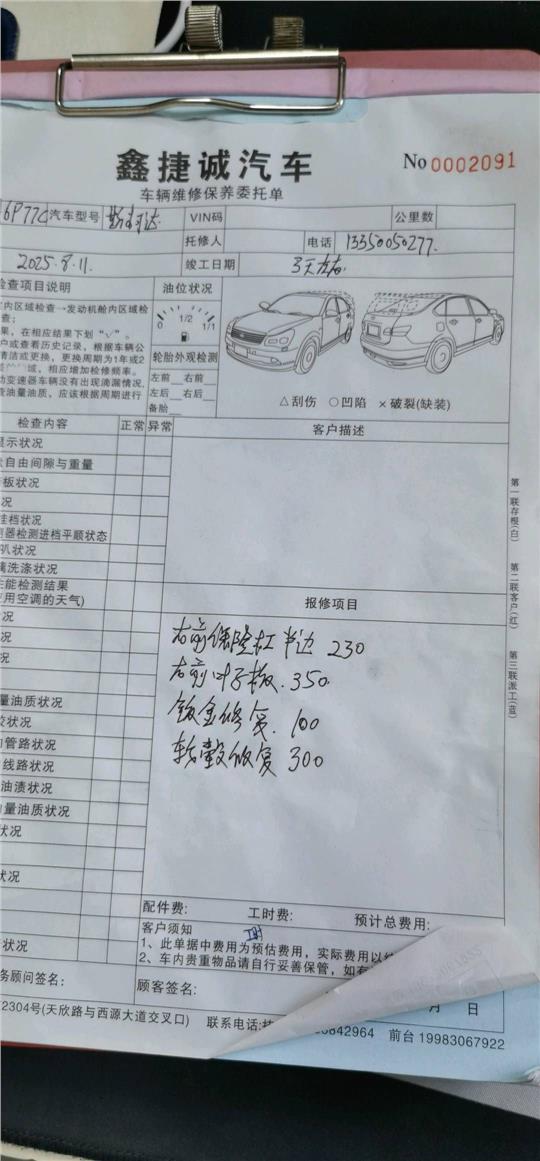 鑫捷诚汽车
No 0002091
车辆维修保养委托单
6P77C 汽车型号 斯柯达 VIN码 公里数
托修人 电话 13350050277.
2025.8.11. 竣工日期 3天左右.
检查项目说明 油位状况
室内区域检查→发动机舱内区域检
查;
果，在相应结果下划“√”。
户或查看历史记录，根据车辆公
清洁或更换，更换周期为1年或2
域，相应增加检修频率。
动变速器车辆没有出现滴漏情况，
查油量油质，应该根据周期进行
1/2
1/1
轮胎外观检测
左前 右前
左后 右后
备胎
△刮伤 ○凹陷 ×破裂(缺装)
检查内容 正常 异常 客户描述
显示状况
自由间隙与重量
板状况
况
挂档状况
测器检测进档平顺状态
叭状况
璃洗涤状况
性能检测结果
使用空调的天气)
报修项目
况
况
况
量油质状况
状况
油管路状况
线路状况
油渍状况
油量油质状况
状况
状况
状况
右前保险杠半边 230
右前叶子板. 350
钣金修复. 100
轮毂修复 300
第一联存根(白)
第二联客户(红)
第三联派工(蓝)
配件费: 工时费: 预计总费用:
客户须知
1、此单据中费用为预估费用，实际费用以
2、车内贵重物品请自行妥善保管，如有
务顾问签名: 顾客签名: 月 日
2304号(天欣路与西源大道交叉口) 联系电话: 842964 前台 19983067922